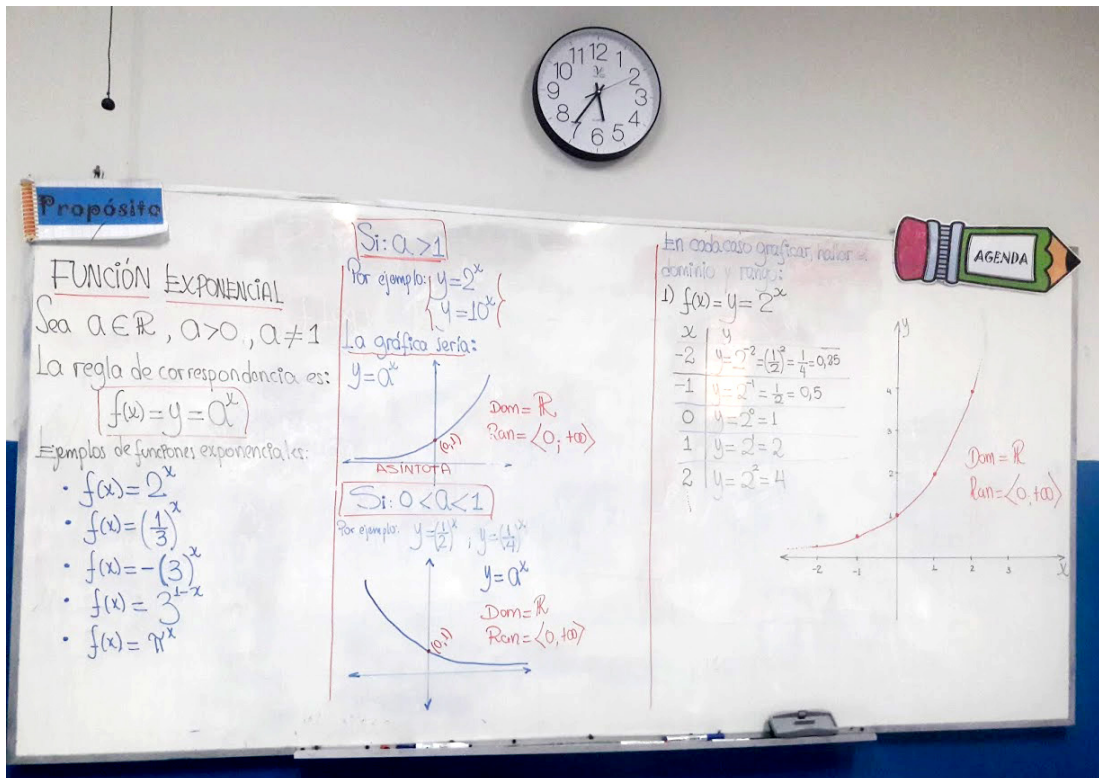 12
1
2
3
4
5
6
7
8
9
10
11
Propósito
FUNCIÓN EXPONENCIAL
Sea a ∈ ℝ, a>0, a≠1
La regla de correspondencia es:
f(x) = y = a^x
Ejemplos de funciones exponenciales:
• f(x) = 2^x
• f(x) = (1/3)^x
• f(x) = -(3)^x
• f(x) = 3^{1-x}
• f(x) = π^x
Si: a > 1
Por ejemplo: { y = 2^x
y = 10^x {
La gráfica sería:
y = a^x
(0,1)
Dom = ℝ
Ran = ⟨0; +∞⟩
ASÍNTOTA
Si: 0 < a < 1
Por ejemplo: y = (1/2)^x ; y = (1/4)^x
y = a^x
(0,1)
Dom = ℝ
Ran = ⟨0, +∞⟩
En cada caso graficar, hallar
dominio y rango:
AGENDA
1) f(x) = y = 2^x
x | y
-2 | y = 2^{-2} = (1/2)^2 = 1/4 = 0,25
-1 | y = 2^{-1} = 1/2 = 0,5
0 | y = 2^0 = 1
1 | y = 2^1 = 2
2 | y = 2^2 = 4
y
4
2
1
-2 -1 1 2 3 x
Dom = ℝ
Ran = ⟨0, +∞⟩